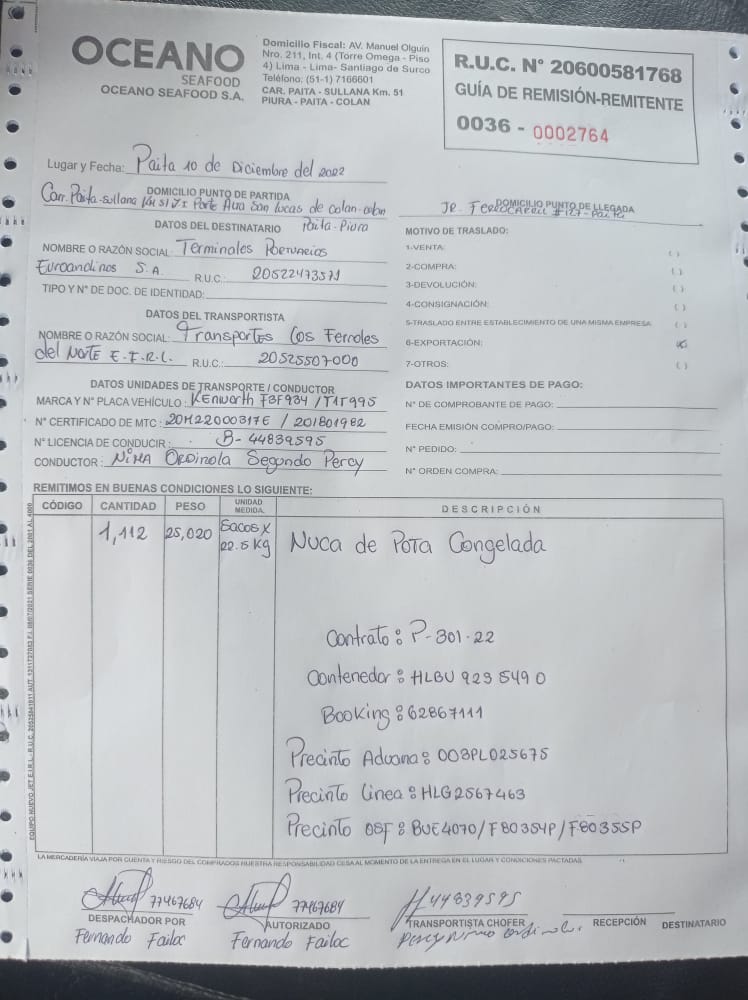 OCEANO
SEAFOOD
OCEANO SEAFOOD S.A.
Domicilio Fiscal: AV. Manuel Olguin
Nro. 211, Int. 4 (Torre Omega - Piso
4) Lima - Lima- Santiago de Surco
Teléfono: (51-1) 7166601
CAR. PAITA - SULLANA Km. 51
PIURA - PAITA - COLAN
R.U.C. N° 20600581768
GUÍA DE REMISIÓN-REMITENTE
0036 - 0002764
Lugar y Fecha: Paita 10 de Diciembre del 2022
DOMICILIO PUNTO DE PARTIDA
Carr. Paita-sullana San Lucas de colan-
Paita-Piura
DOMICILIO PUNTO DE LLEGADA
Jr. Ferrocarril #127-Paita
DATOS DEL DESTINATARIO
NOMBRE O RAZÓN SOCIAL: Terminales
Euroandinos S.A. R.U.C.: 20522473571
TIPO Y N° DE DOC. DE IDENTIDAD:
MOTIVO DE TRASLADO:
1-VENTA: ( )
2-COMPRA: ( )
3-DEVOLUCIÓN: ( )
4-CONSIGNACIÓN: ( )
5-TRASLADO ENTRE ESTABLECIMIENTO DE UNA MISMA EMPRESA ( )
6-EXPORTACIÓN: (x)
7-OTROS: ( )
DATOS DEL TRANSPORTISTA
NOMBRE O RAZÓN SOCIAL: Transportes Los Ferroles
del Norte E.I.R.L. R.U.C.: 20525507000
DATOS UNIDADES DE TRANSPORTE / CONDUCTOR
MARCA Y N° PLACA VEHÍCULO: Kenworth F3F934 / T1T995
N° CERTIFICADO DE MTC: 20M22000317E / 201801982
N° LICENCIA DE CONDUCIR: B-44839595
CONDUCTOR: Nima Ordinola Segundo Percy
DATOS IMPORTANTES DE PAGO:
N° DE COMPROBANTE DE PAGO:
FECHA EMISIÓN COMPRO/PAGO:
N° PEDIDO:
N° ORDEN COMPRA:
REMITIMOS EN BUENAS CONDICIONES LO SIGUIENTE:
CÓDIGO CANTIDAD PESO UNIDAD MEDIDA DESCRIPCIÓN
1,112 25,020 Sacos x 22.5 Kg Nuca de Pota Congelada
Contrato: P-301-22
Contenedor: HLBU 923 5490
Booking: 62867111
Precinto Aduana: 003PL025675
Precinto Linea: HLG2567463
Precinto OSF: BUE4070/F80354P/F80355P
LA MERCADERÍA VIAJA POR CUENTA Y RIESGO DEL COMPRADOR NUESTRA RESPONSABILIDAD CESA AL MOMENTO DE LA ENTREGA EN EL LUGAR Y CONDICIONES PACTADAS.
77467684
DESPACHADOR POR
Fernando Failoc
77467684
AUTORIZADO
Fernando Failoc
44839595
TRANSPORTISTA CHOFER
RECEPCIÓN DESTINATARIO